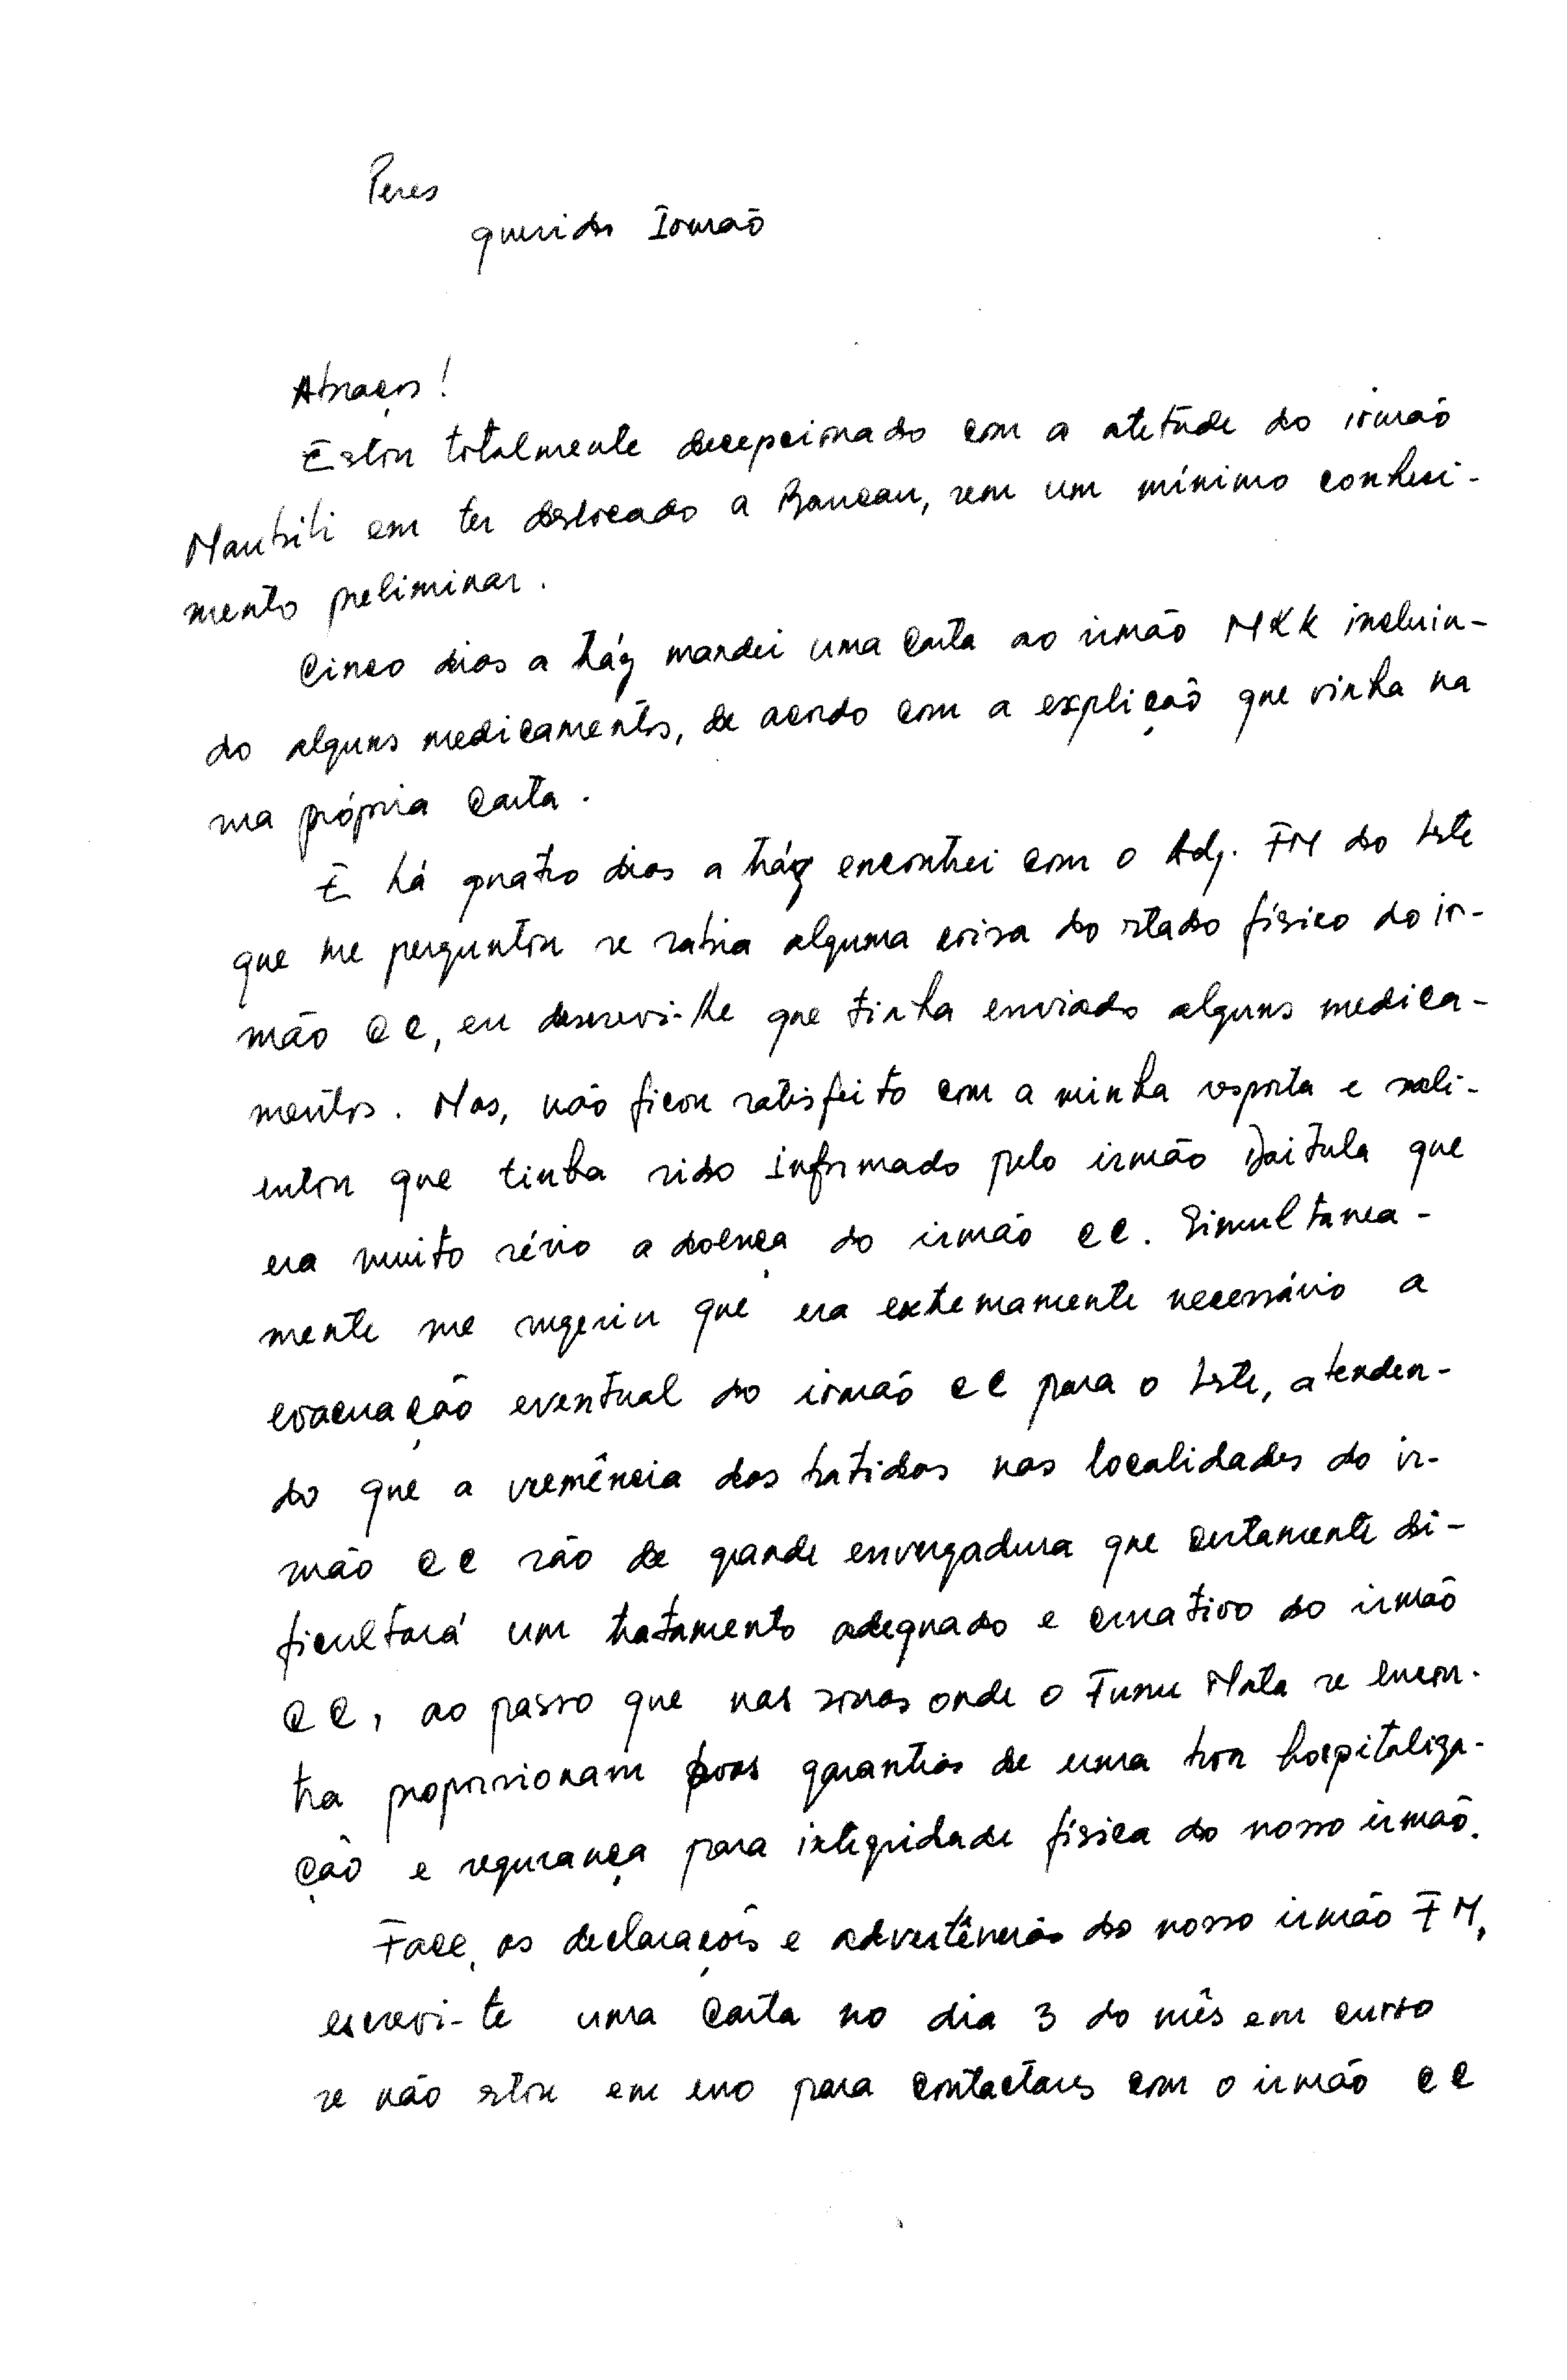 Peres
querido Irmaõ
Abraços!
Estou totalmente decepcionado com a atetude do irmaõ
Maubiti em ter deslocado a Baucau, sem um mínimo conheci-
mento preliminar.
Cinco dias a tráz mandei uma Carta ao irmão MKK incluin-
do alguns medicamentos, de acordo com a expliçaõ que vinha na
ma própria Carta.
E há quatro dias a tráz encontrei com o Adj. FM do Leste
que me perguntou se sabia alguma coisa do stado físico do ir-
mão CC, eu descrevi-lhe que tinha enviado alguns medica-
mentos. Mas, não ficou satisfeito com a minha resposta e sali-
entou que tinha sido informado pelo irmão Daitula que
era muito sério a doença do irmão CC. Simultanea-
mente me sugeriu que era extremamente necessário a
evacuação eventual do irmão CC para o Leste, atenden-
do que a veemência das batidas nas localidades do ir-
mão CC são de grande envergadura que certamente di-
ficultará um tratamento adequado e curativo do irmão
CC, ao passo que nas zonas onde o Funu Mata se encon-
tra proporsionam boas garantias de uma boa hospitaliza-
ção e segurança para integridade física do nosso irmaõ.
Face, as declaraçoẽs e advertências do nosso irmão FM,
escrevi-te uma Carta no dia 3 do mês em curso
se não stou em erro para contactares com o irmão CC